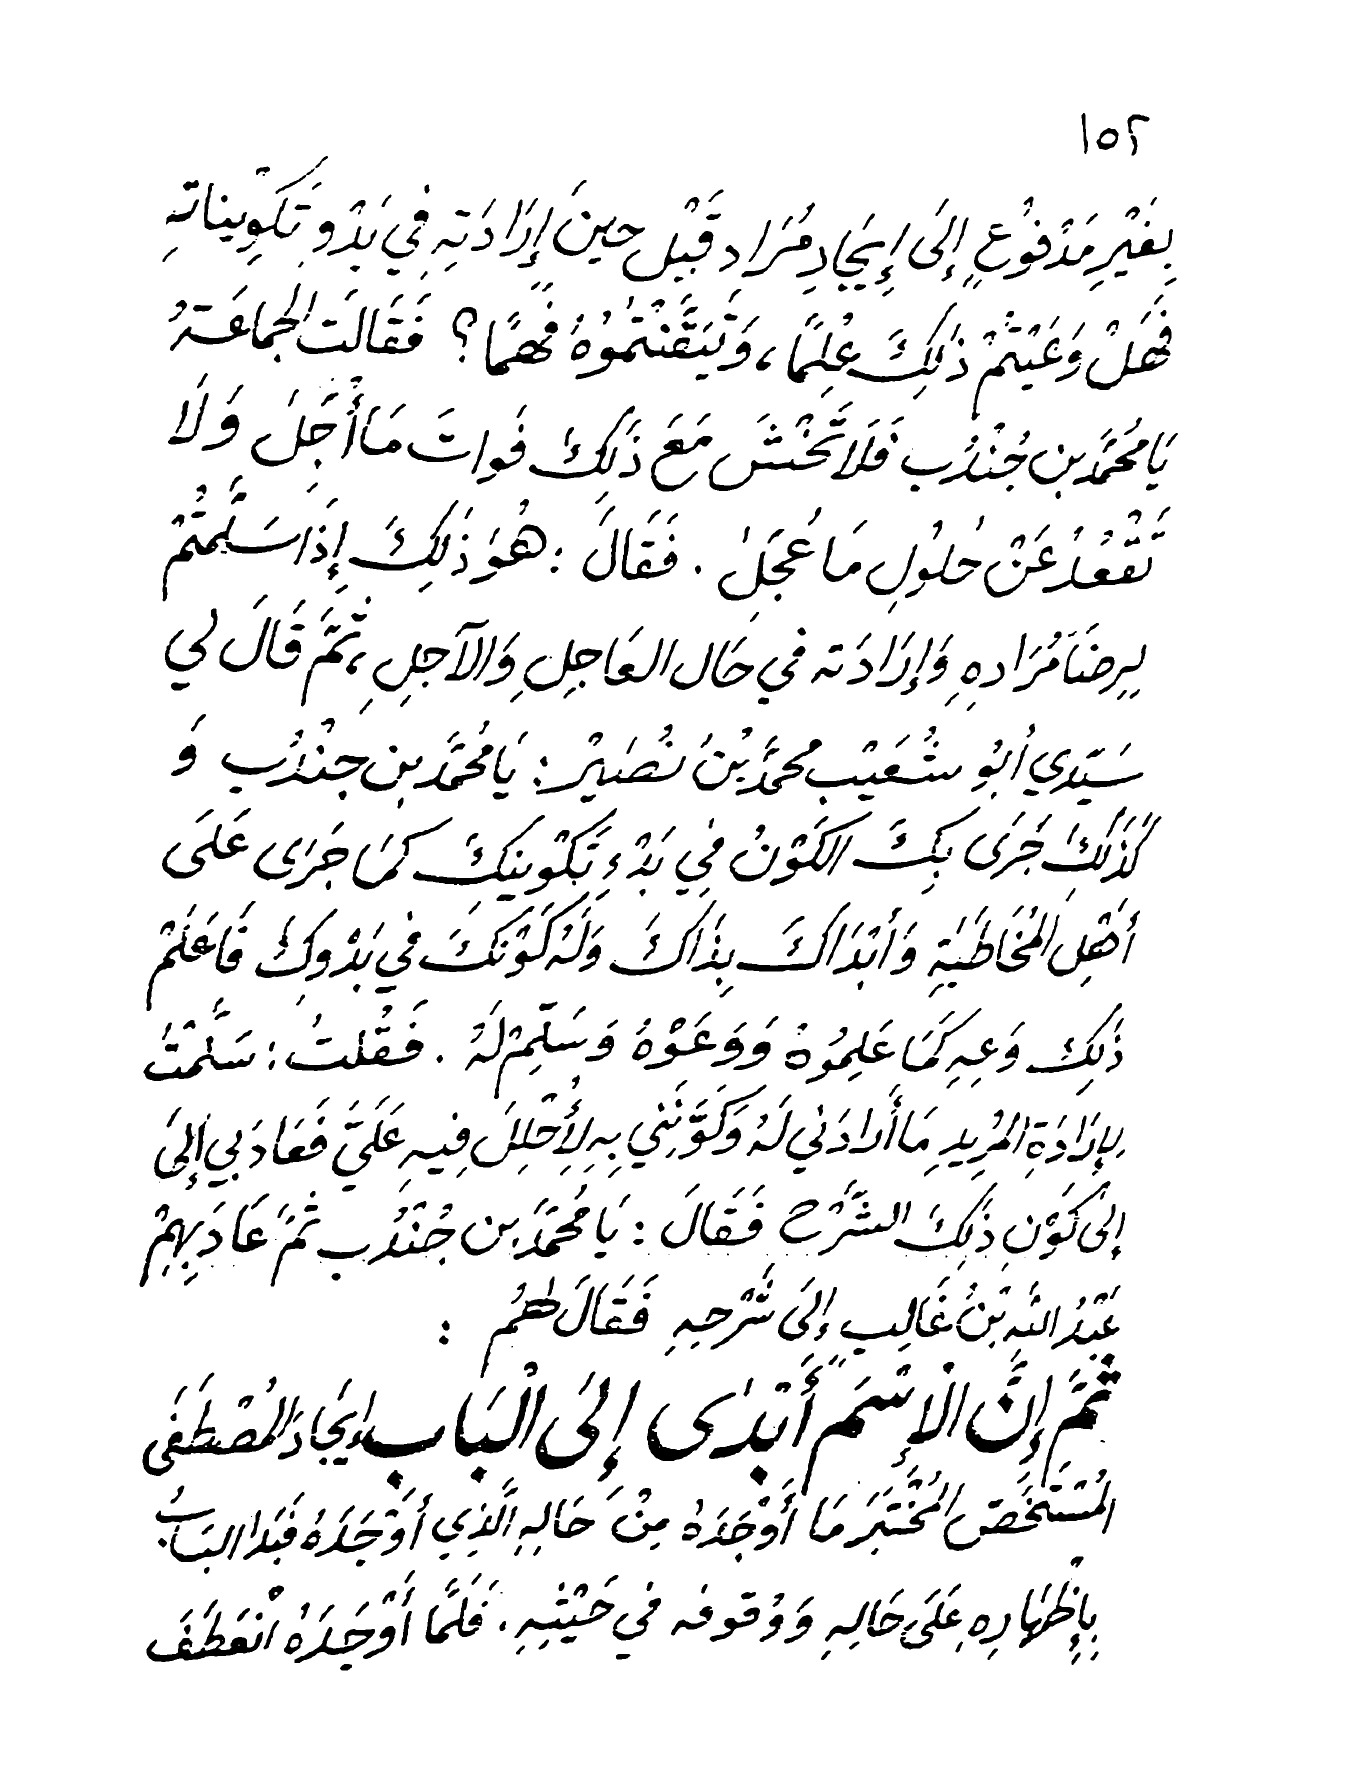 ١٥٢
بِغَيْرِ مَدْفُوعٍ إِلَى إِيجَادِ مُرَادٍ قَبْلَ حِينَ إِرَادَتِهِ فِي بَدْوِ تَكْوِينَاتِهِ
فَهَلْ وَعَيْتُمْ ذٰلِكَ عِلْمًا، وَتَيَقَّنْتُمُوهُ فَهْمًا؟ فَقَالَتْ الجَمَاعَةُ
يَا مُحَمَّد بن جُنْدُب فَلَا تَخْشَ مَعَ ذَلِكَ فَوَاتَ مَا أُجِّلَ وَلَا
تَقْعُدُ عَنْ حُلُولِ مَا عُجِلَ . فَقَالَ : هُوَ ذٰلِكَ إِذَا سَلَّمْتُمْ
لِرِضَا مُرَادِهِ وَإِرَادَته في حَال العَاجِلِ وَالآجِلِ، ثُمَّ قَالَ لي
سَيّدي أبُو شُعَيْب محمَّد بْنُ نُصَيْر : يَا مُحَمَّد بن جنْدُب وَ
كَذَلِكَ جَرَى بِكَ الكَوْنُ فِي بَدْءِ تَكْوينِكَ كَمَا جَرَى عَلَى
أهْلِ المُخَاطَبَةِ وَأبْدَاكَ بِذَاكَ وَلَهُ كَوَّنَكَ في بَدْوكَ فَاعَلَمْ
ذَلِكَ وَعِهِ كَمَا عَلِمُوهُ وَوَعَوْهُ وَسَلِّمْ لَهُ . فَقُلتُ : سَلَّمْتُ
لإِرَادَةِ المُرِيدِ مَا أَرادَني لَهُ وَكَوَّنَنِي بِهِ لِأُحَلِّلَ فِيهِ عَلَيَّ فَعَادَ بي إلى
إلى كَوْنِ ذَلِكَ الشَّرْح فَقَالَ : يَا مُحَمَّد بن جُنْدُب ثُمَّ عَادَ بِهِمْ
عَبْدُ اللَّهِ بْنُ غَالِبٍ إِلَى شَرْحِهِ فَقَالَ لَهُمْ :
ثُمَّ إِنَّ الْإِسْمَ أَبْدَى إِلَى الْبَابِ إيجَادَ المُصْطَفَى
المُسْتَخَصّ المُخْتَبَر مَا أَوْجَدَهُ مِنْ حَالِهِ الَّذِي أوْجَدَهُ فَبَدا البَابُ
بِإِظهَارِهِ عَلَى حَالِهِ وَوُقوفه في حَيْثِهِ . فَلَمَّا أَوْجَدَهُ انْعَطَفَ